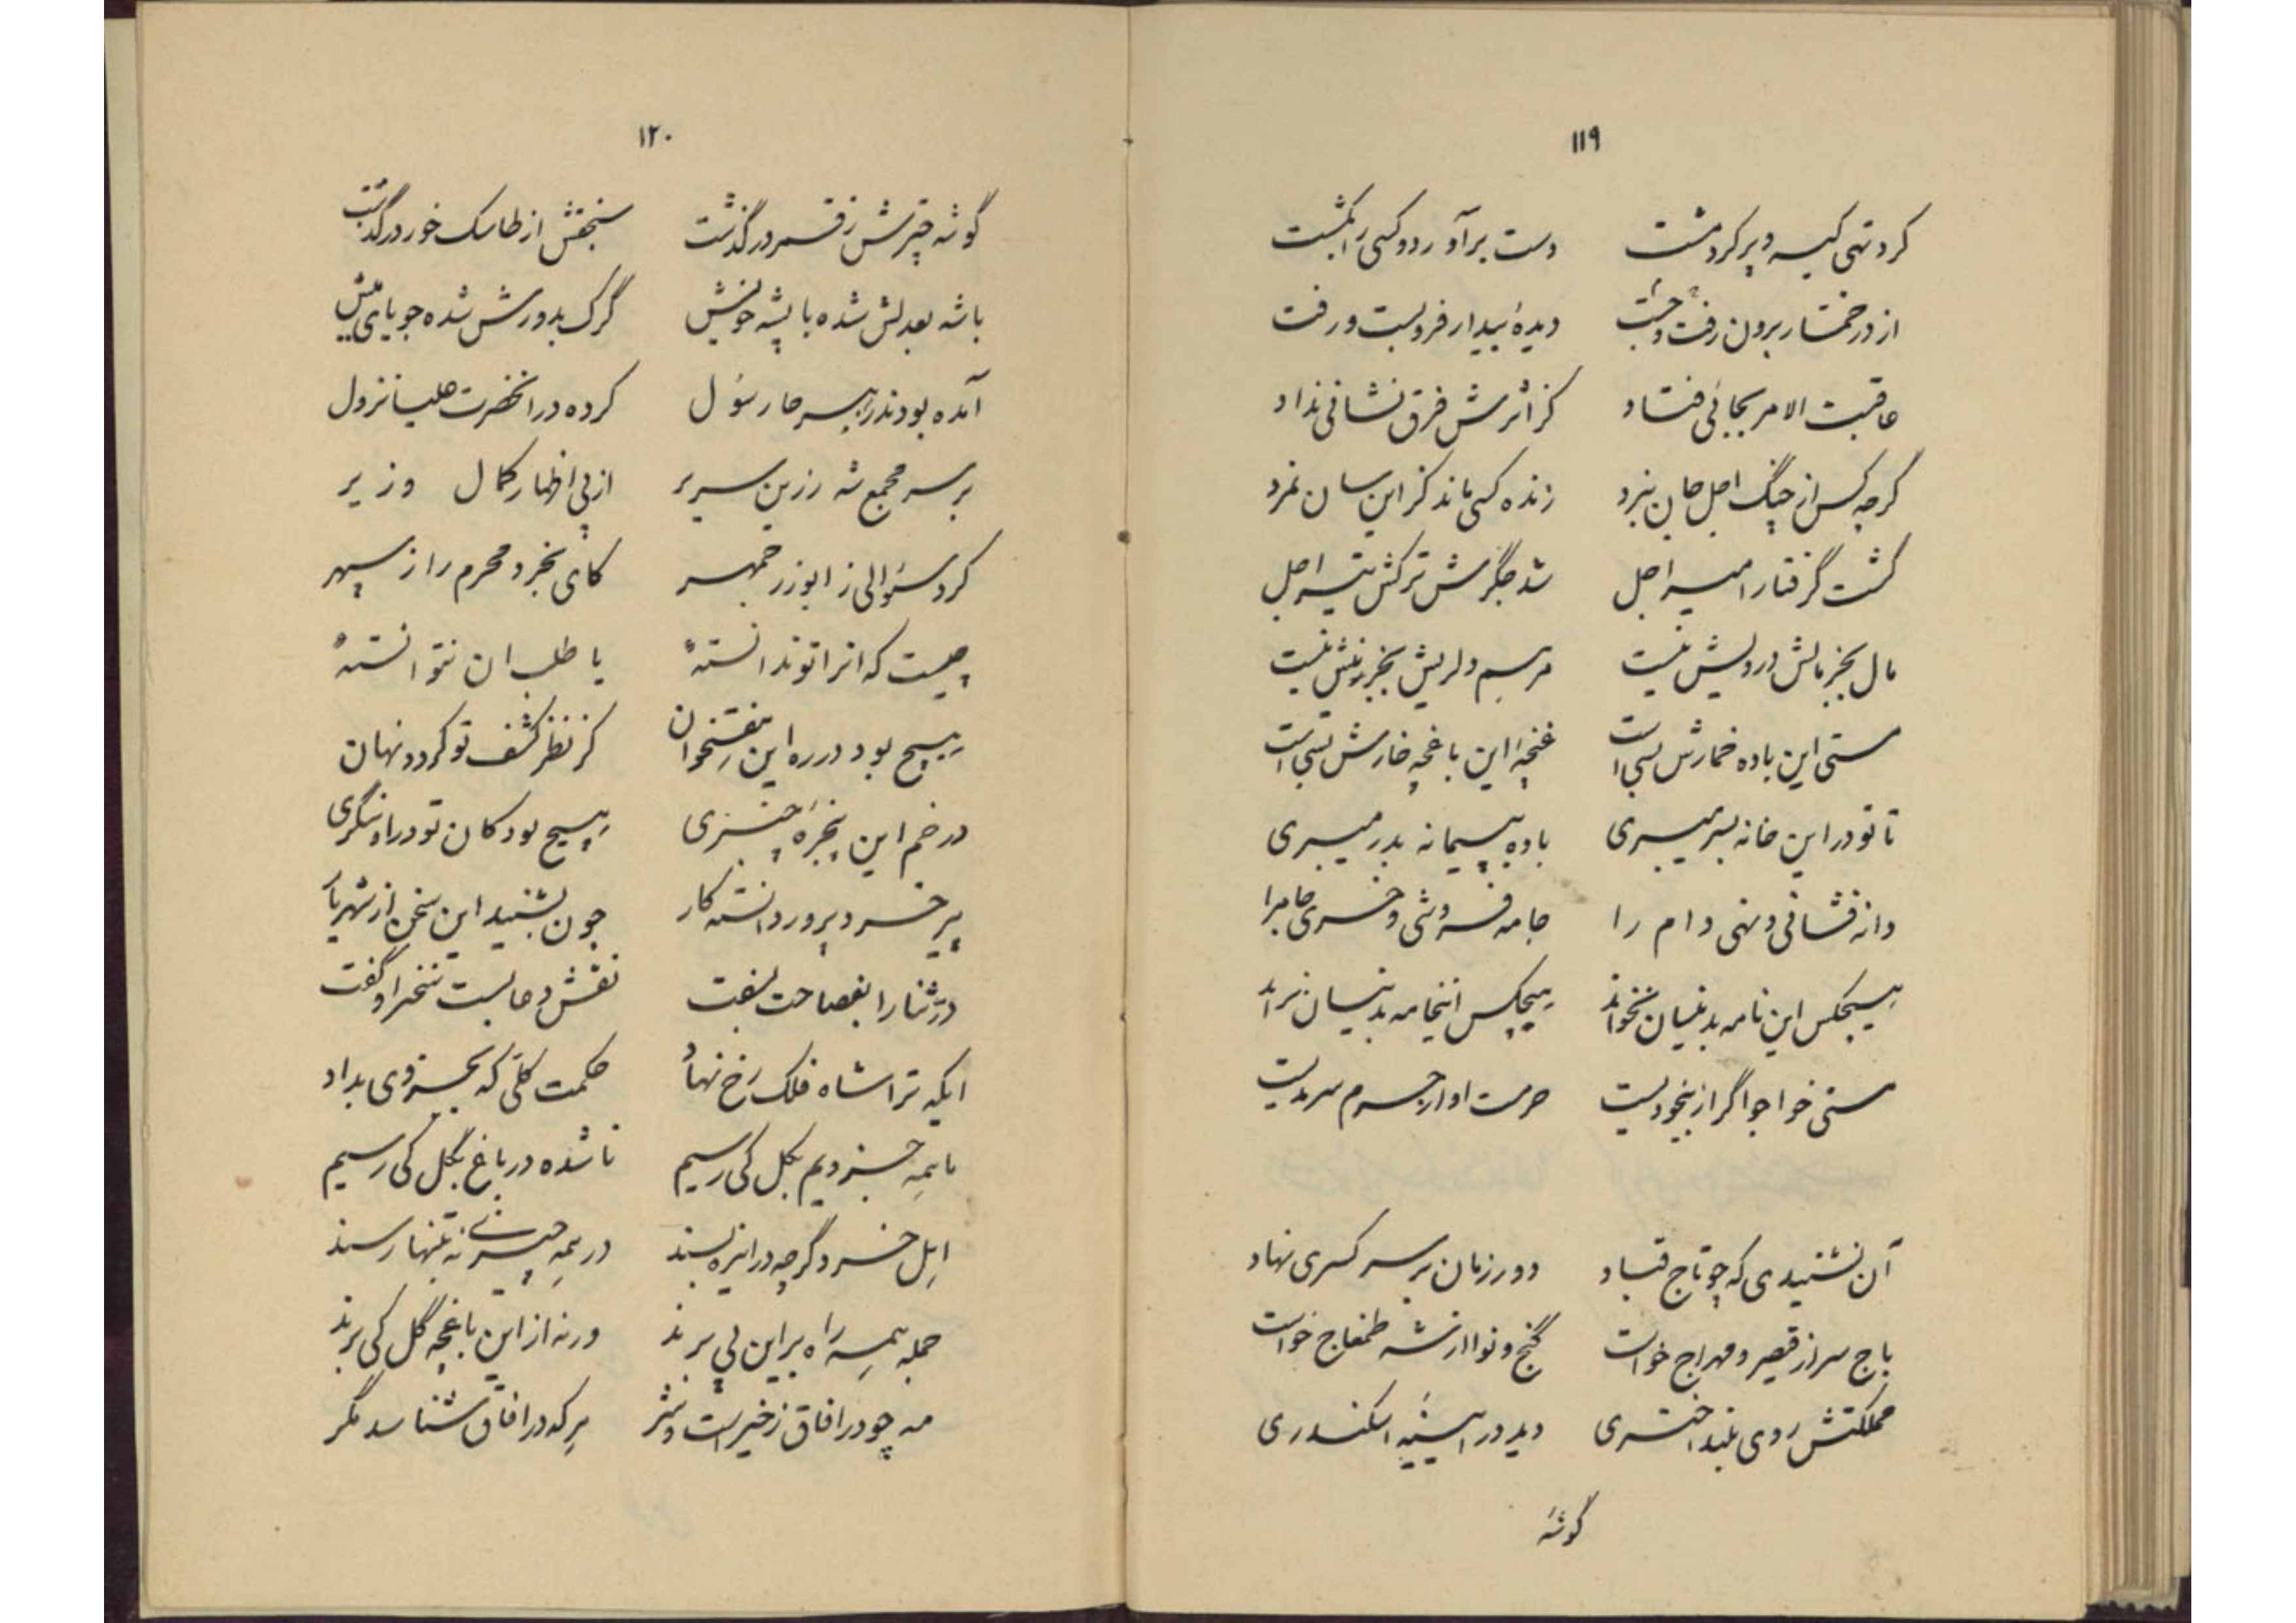 ۱۱۹
کرد تهی کیسه و پر کرد مشت دست برآورد و کسی را بکشت
از در خمّار برون رفت و خفت دیدهٔ بیدار فرو بست و رفت
عاقبت الامر بجائی فتاد کز اثرش فرق نشانی نداد
گرچه کس از چنگ اجل جان نبرد زنده کسی ماند کز این سان نمرد
گشت گرفتار امیر اجل شد جگرش ترکش تیر اجل
مال بجز مالش درویش نیست مرهم دلریش بجز نیش نیست
مستی این باده خمارش بسی است غنچهٔ این باغچه خارش بسی است
تا تو در این خانه بسر میبری باده پیمانه بدر میبری
دانه فشانی و نهی دام را جامه فروشی و خری جام را
هیچکس این نامه بدینسان نخواند هیچکس اینجامه بدینسان نراند
مستی خواجو اگر از بیخودیست حرمت او از حرم سرمدیست
آن نشنیدی که چو تاج قباد دور زمان بر سر کسری نهاد
باج سر از قیصر و مهراج خواست گنج و نوا از شه طمغاج خواست
مملکتش روی بلند اختری دید در آیینهٔ اسکندری
گوشهٔ
۱۲۰
گوشه چترش ز قمر درگذشت سنجقش از طاسک خور درگذشت
باشه بعدلش شده با پشه خویش گرگ بدورش شده جویای میش
آمده بودند ز هر سر جا رسول کرده در انحضرت علیا نزول
بر سر مجمع شه زرین سریر از پی اظهار کمال وزیر
کرد سئوالی ز ابوزرجمهر کای بخرد محرم راز سپهر
چیست که انرا تو ندانستهٔ یا طلب ان نتوانستهٔ
هیچ بود در ره این هفتخوان کز نظر کشف تو گردد نهان
در خم این پنجرهٔ چنبری هیچ بود کان تو در او ننگری
پیر خرد پرور دانسته کار چون بشنید این سخن از شهریار
درّ ثنا را بفصاحت بسفت نقش دعا بست نخست او گفت
ایکه ترا شاه فلک رخ نهاد حکمت کلّی که بجزوی بداد
ما همه جزویم بکل کی رسیم نا شده در باغ بگل کی رسیم
اهل خرد گرچه در این ره بسند در همه چیزی نه بتنها رسند
جمله همه راه بر این پی برند ورنه از این باغچه گل کی برند
مه چو در افاق ز خیر است و شر هر که در افاق شناسد مگر